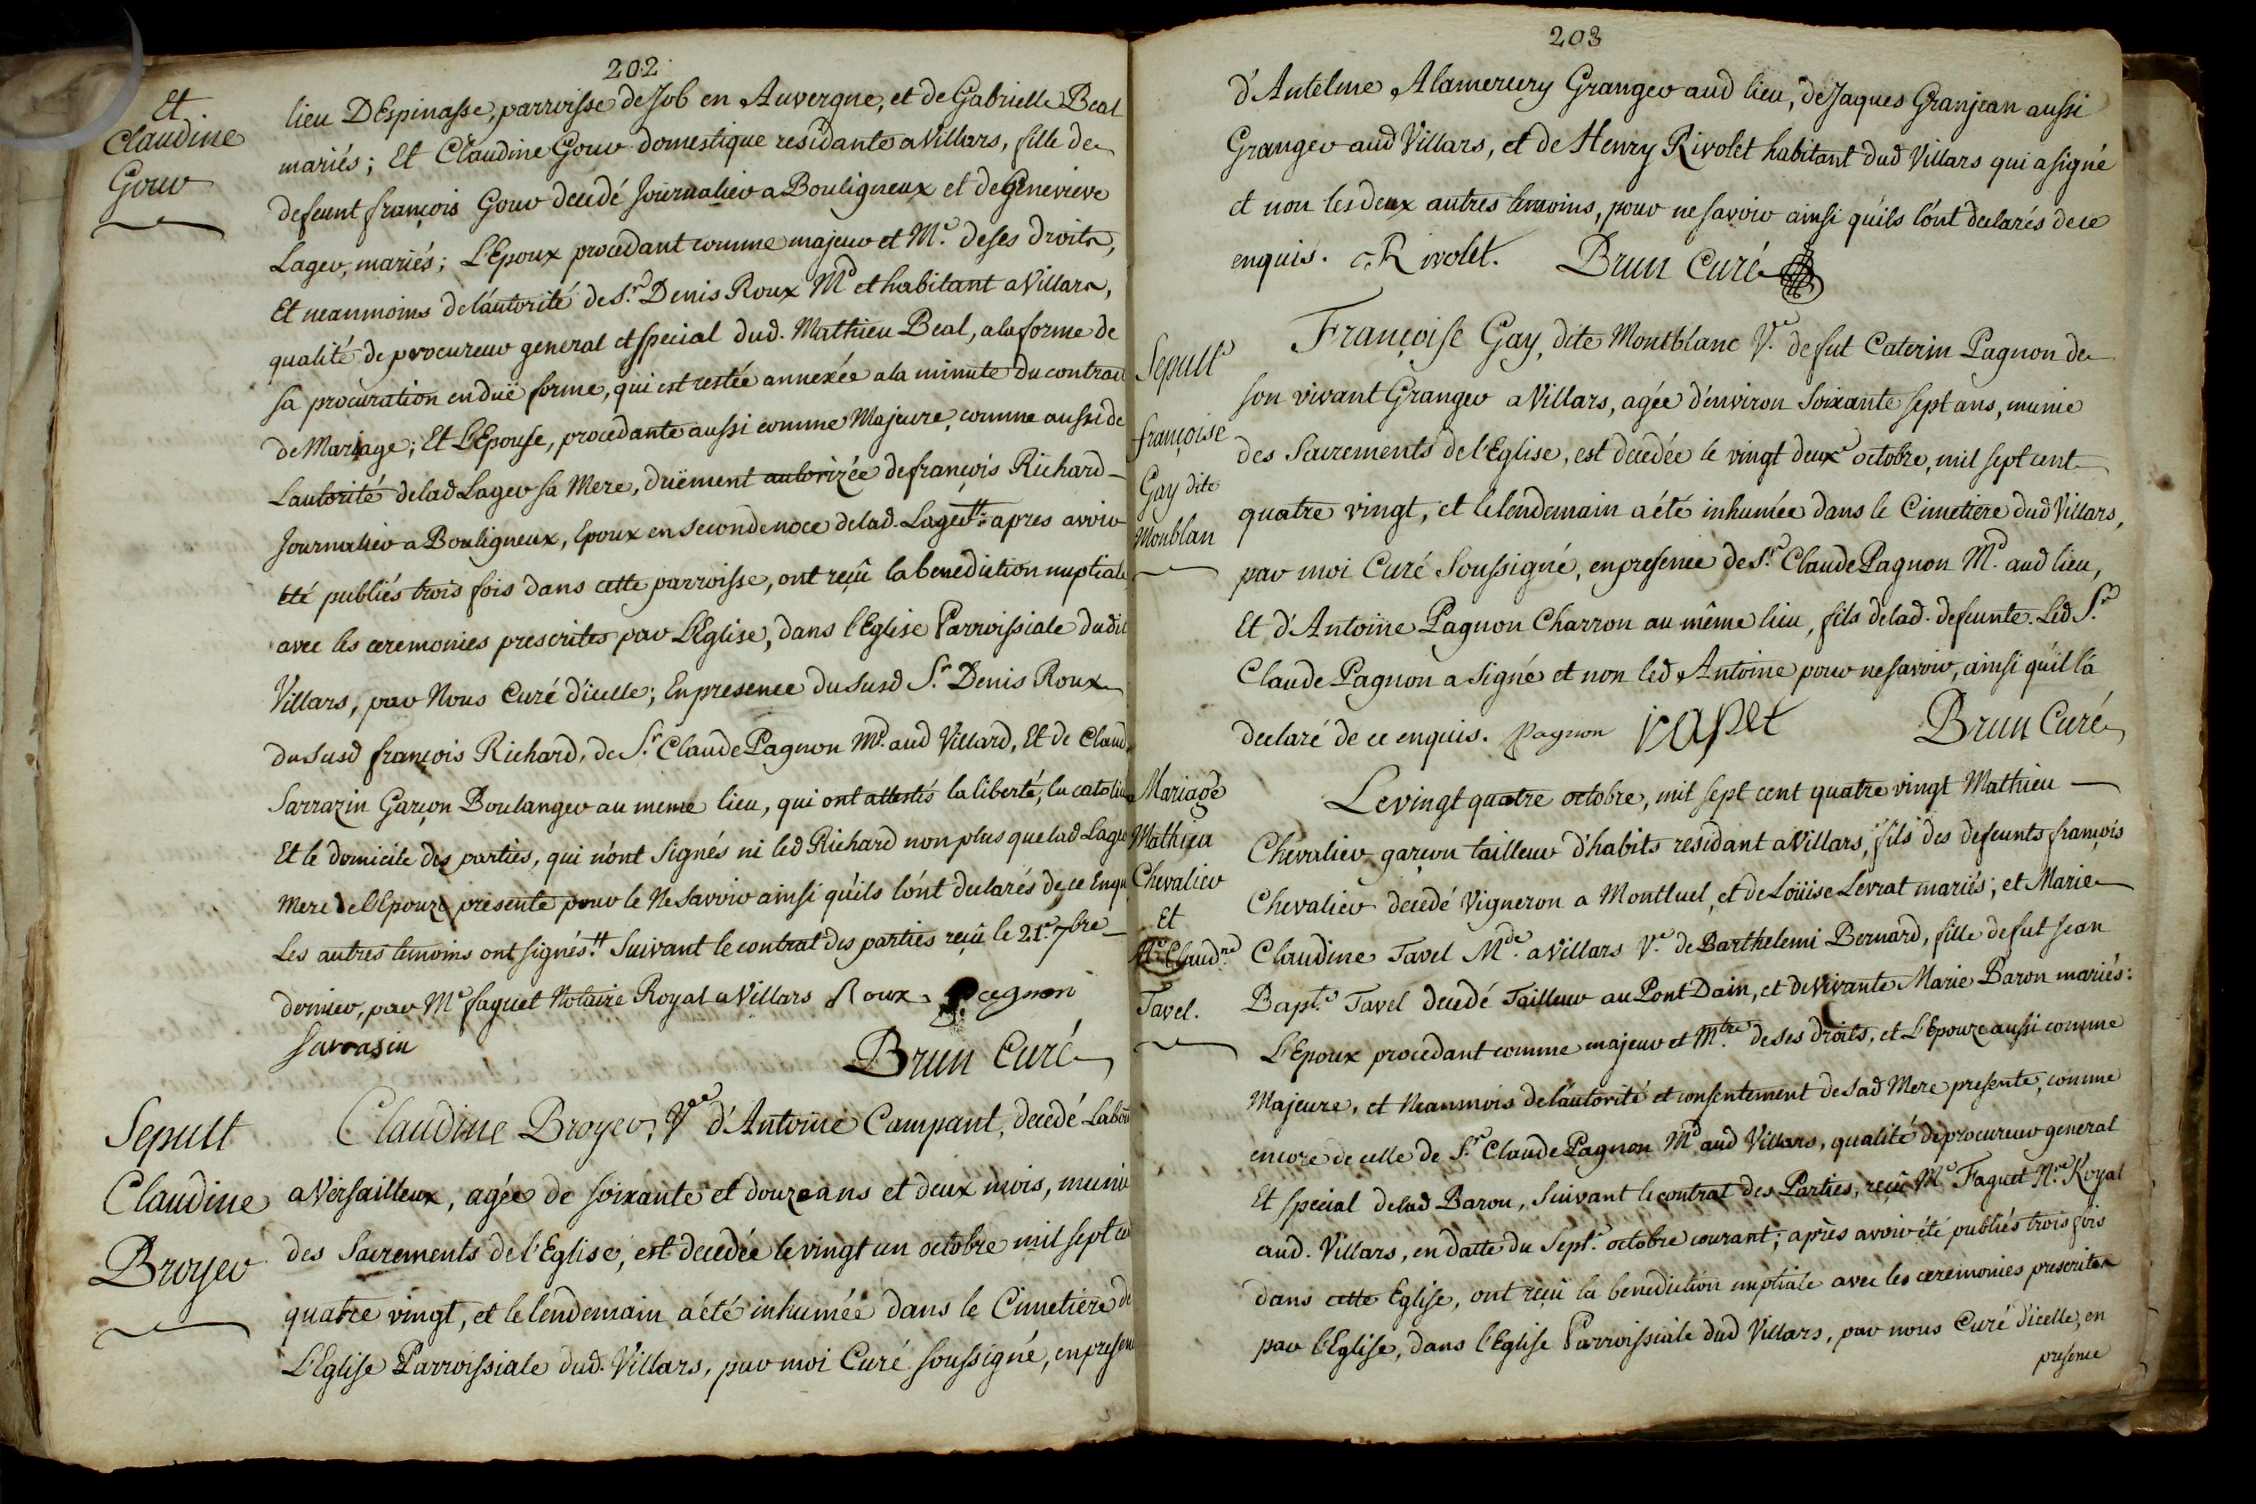 202
Et
Claudine
Gouv
lieu D'Espinasse, parroisse de Job en Auvergne, et de Gabrielle Beal
mariés; Et Claudine Gouv domestique residante a Villars, fille de
defeunt françois Gouv decedé Journaliev a Bouligneux et de Genevieve
Lagev, mariés; L'Epoux procedant comme majeuv et M.e de ses droits,
Et neanmoins de l'autorité de S.r Denis Roux M.d et habitant a Villars,
qualité de procureuv general et special dud. Mathieu Beal, a la forme de
sa procuration en duë forme, qui est restée annexée a la minute du contract
de Mariage; Et L'Epouse, procedante aussi comme Majeure, comme aussi de
L'autorité de lad Lagev sa Mere, duëment autorizée de françois Richard
Journaliev a Bouligneux, Epoux en seconde noce de lad. Lagev tt apres avoiv
été publiés trois fois dans cette parroisse, ont reçû la benediction nuptiale
avec les ceremonies prescrites pav L'Eglise, dans l'Eglise Parroissiale dudit
Villars, pav Nous Curé d'icelle; En presence du susd S.r Denis Roux
du susd françois Richard, de S.r Claude Pagnon Md. aud Villard, Et de Claud
Sarrazin Garçon Boulangev au meme lieu, qui ont attestés la liberté, la catolic
Et le domicile des parties, qui n'ont signés ni led Richard non plus que lad Lagev
Mere de l'Epouze presente pouv le Ne savoiv ainsi qu'ils l'ont declarés de ce Enqu
Les autres temoins ont signés tt Suivant le contrat des parties reçû le 21.e 7bre
derniev, pav M.e faguet Notaire Royal a Villars Roux. Pagnon
Sarrasin
Brun Curé
Sepult
Claudine
Broyev
Claudine Broyev, Vee d'Antoine Campant, decedé Labou
a Versailleux, agée de soixante et douze ans et deux mois, munie
des Sacrements de l'Eglise, est decedée le vingt un octobre mil sept ce
quatre vingt, et le lendemain a été inhumée dans le Cimetiere de
L'Eglise Parroissiale dud. Villars, pav moi Curé soussigné, en presenc
203
d'Antelme Alamercery Grangev aud lieu, de Jaques Granjean aussi
Grangev aud Villars, et de Henry Rivolet habitant dud Villars qui a signé
et non les deux autres temoins, pouv ne savoiv ainsi qu'ils l'ont declarés de ce
enquis. Rivolet. Brun Curé
Sepult.e
françoise
Gay dite
Monblan
Françoise Gay, dite Montblanc V.e de fut Caterin Pagnon de
son vivant Grangev a Villars, agée d'environ Soixante sept ans, munie
des Sacrements de l'Eglise, est decedée le vingt deux.e octobre, mil sept cent
quatre vingt, et le lendemain a été inhumée dans le Cimetiere dud Villars,
pav moi Curé Soussigné, en presence de S.r Claude Pagnon M.d aud lieu,
Et d'Antoine Pagnon Charron au même lieu, fils de lad. defeunte. Led S.r
Claude Pagnon a signé et non led Antoine pouv ne savoiv, ainsi qu'il l'a
declaré de ce enquis. Pagnon Brun Curé
Mariage
Mathieu
Chevaliev
Et
M.e Claud.ne
Tavel.
Le vingt quatre octobre, mil sept cent quatre vingt Mathieu
Chevaliev garçon tailleuv d'habits residant a Villars, fils des defeunts françois
Chevaliev decedé Vigneron a Montluel, et de Loüise Levrat mariés; et Marie
Claudine Tavel M.de a Villars V.e de Barthelemi Bernard, fille de fut Jean
Bapt.e Tavel decedé Tailleuv au Pont Dain, et de vivante Marie Baron mariés:
L'Epoux procedant comme majeuv et M.tre de ses droits, et L'Epouze aussi comme
Majeure, et Neanmois de l'autorité et consentement de sad Mere presente, comme
encore de celle de S.r Claude Pagnon Md aud Villars, qualité de procureuv general
Et special de lad Baron, Suivant le contrat des Parties, reçû M.e Faguet N.re Royal
aud. Villars, en datte du Sept.e octobre courant; après avoiv été publiés trois fois
dans cette Eglise, ont reçû la benediction nuptiale avec les ceremonies prescrites
pav l'Eglise, dans l'Eglise Parroissiale dud Villars, pav nous Curé d'icelle, en
presence